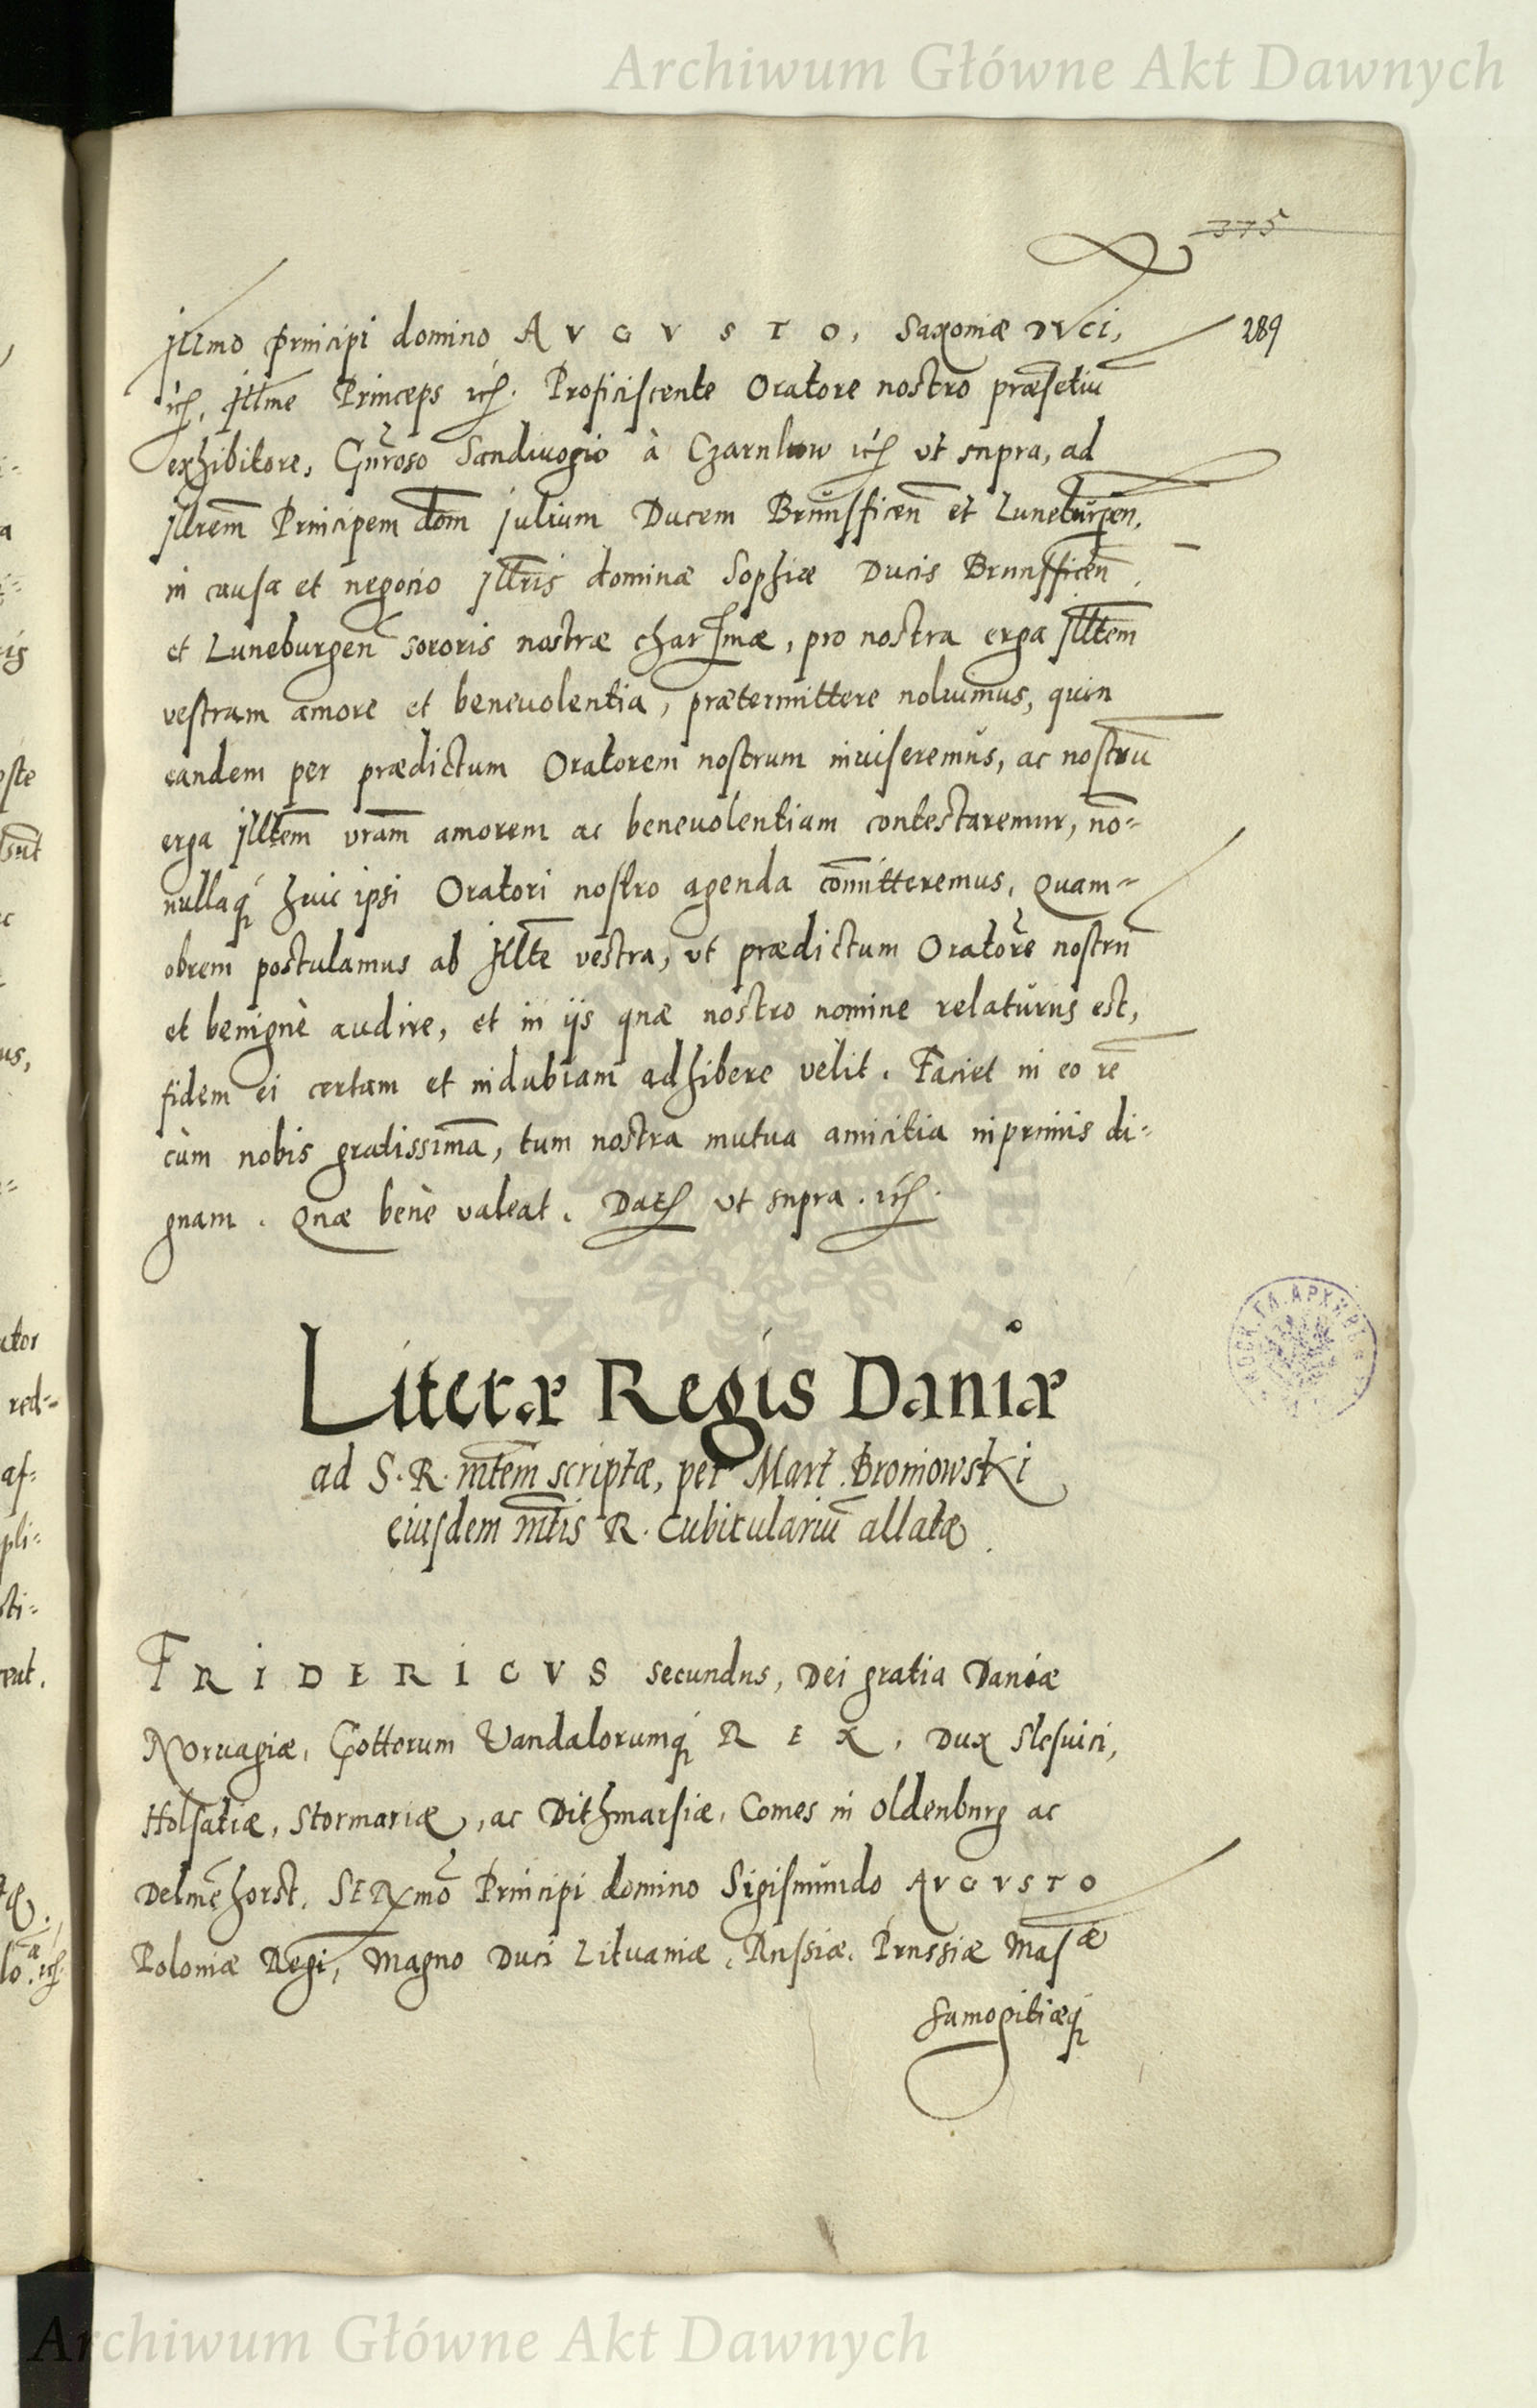 Archiwum Główne Akt Dawnych
375
289
Jllmo Principi domino AVGVSTO, Saxoniæ DVCi,
etc. Jllme Princeps etc. Proficiscente Oratore nostro præsētiū
exhibitore, Gnroso Sandiuogio à Czarnkow etc ut supra, ad
Jllrem̄ Principem dom̄ Julium Ducem Brunsficen̄ et Luneburgen̄,
in causa et negocio Jllris dominæ Sophiæ Ducis Brunsficen̄
et Luneburgen̄ sororis nostræ charssmæ, pro nostra erga Jlltem̄
vestram amore et beneuolentia, prætermittere noluimus, quin
eandem per prædictum Oratorem nostrum inuiseremus, ac nostrū
erga Jlltem̄ vram̄ amorem ac beneuolentiam contestaremur, nō=
nullaq́ huic ipsi Oratori nostro agenda com̄itteremus. Quam=
obrem postulamus ab Jllte vestra, ut prædictum Oratorē nostrū
et benignè audire, et in ijs quæ nostro nomine relaturus est,
fidem ei certam et indubiam adhibere velit. Faciet in eo rē
cùm nobis gratissimā, tum nostra mutua amicitia inprimis di=
gnam. Quæ benè valeat. Dat ut supra. etc.
Literæ Regis Daniæ
ad S. R. mtem̄ scriptæ, per Mart. Broniowski
eiusdem mtis R. Cubiculariū allatæ.
FRIDERICVS secundus, Dei gratia Daniæ
Noruagiæ, Gottorum Vandalorumq́ REX, Dux Slesuici,
Holsatiæ, Stormariæ, ac Dithmarsiæ, Comes in Oldenburg ac
Delmēhorst. SERmo Principi domino Sigismundo AVGVSTO
Poloniæ Regi, Magno Duci Lituaniæ, Russiæ, Prussiæ Masæ
Samogitiæq́
Archiwum Główne Akt Dawnych